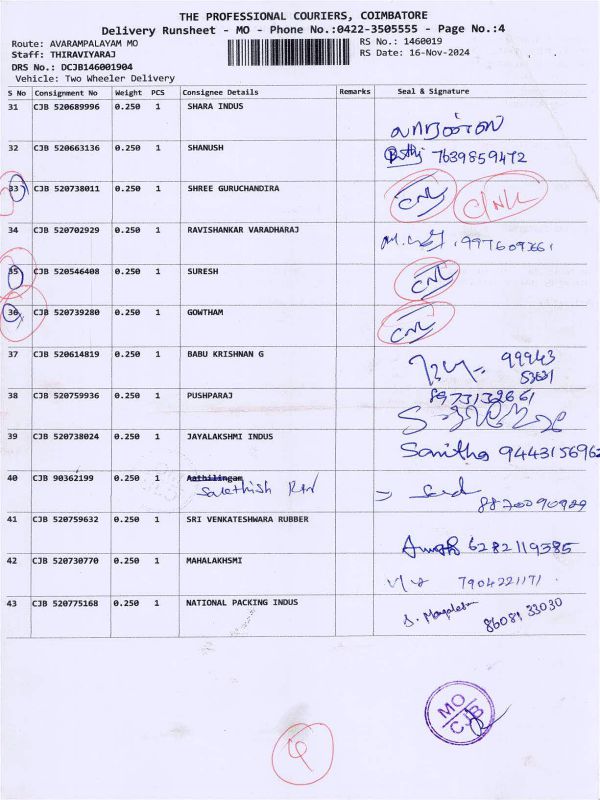 THE PROFESSIONAL COURIERS, COIMBATORE
Delivery Runsheet - MO - Phone No.:0422-3505555 - Page No.:4
Route: AVARAMPALAYAM MO RS No.: 1460019
Staff: THIRAVIYARAJ RS Date: 16-Nov-2024
DRS No.: DCJB146001904
Vehicle: Two Wheeler Delivery
S No Consignment No Weight PCS Consignee Details Remarks Seal & Signature
31 CJB 520689996 0.250 1 SHARA INDUS
32 CJB 520663136 0.250 1 SHANUSH 7639859472
33 CJB 520738011 0.250 1 SHREE GURUCHANDIRA CNL CNL
34 CJB 520702929 0.250 1 RAVISHANKAR VARADHARAJ
35 CJB 520546408 0.250 1 SURESH CNL
36 CJB 520739280 0.250 1 GOWTHAM CNL
37 CJB 520614819 0.250 1 BABU KRISHNAN G 99943
38 CJB 520759936 0.250 1 PUSHPARAJ
39 CJB 520738024 0.250 1 JAYALAKSHMI INDUS Sanitha 9443156962
40 CJB 90362199 0.250 1 Aathilingam
41 CJB 520759632 0.250 1 SRI VENKATESHWARA RUBBER 6282119385
42 CJB 520730770 0.250 1 MAHALAKHSMI 7904221171
43 CJB 520775168 0.250 1 NATIONAL PACKING INDUS 86089 33030
MO
CJB